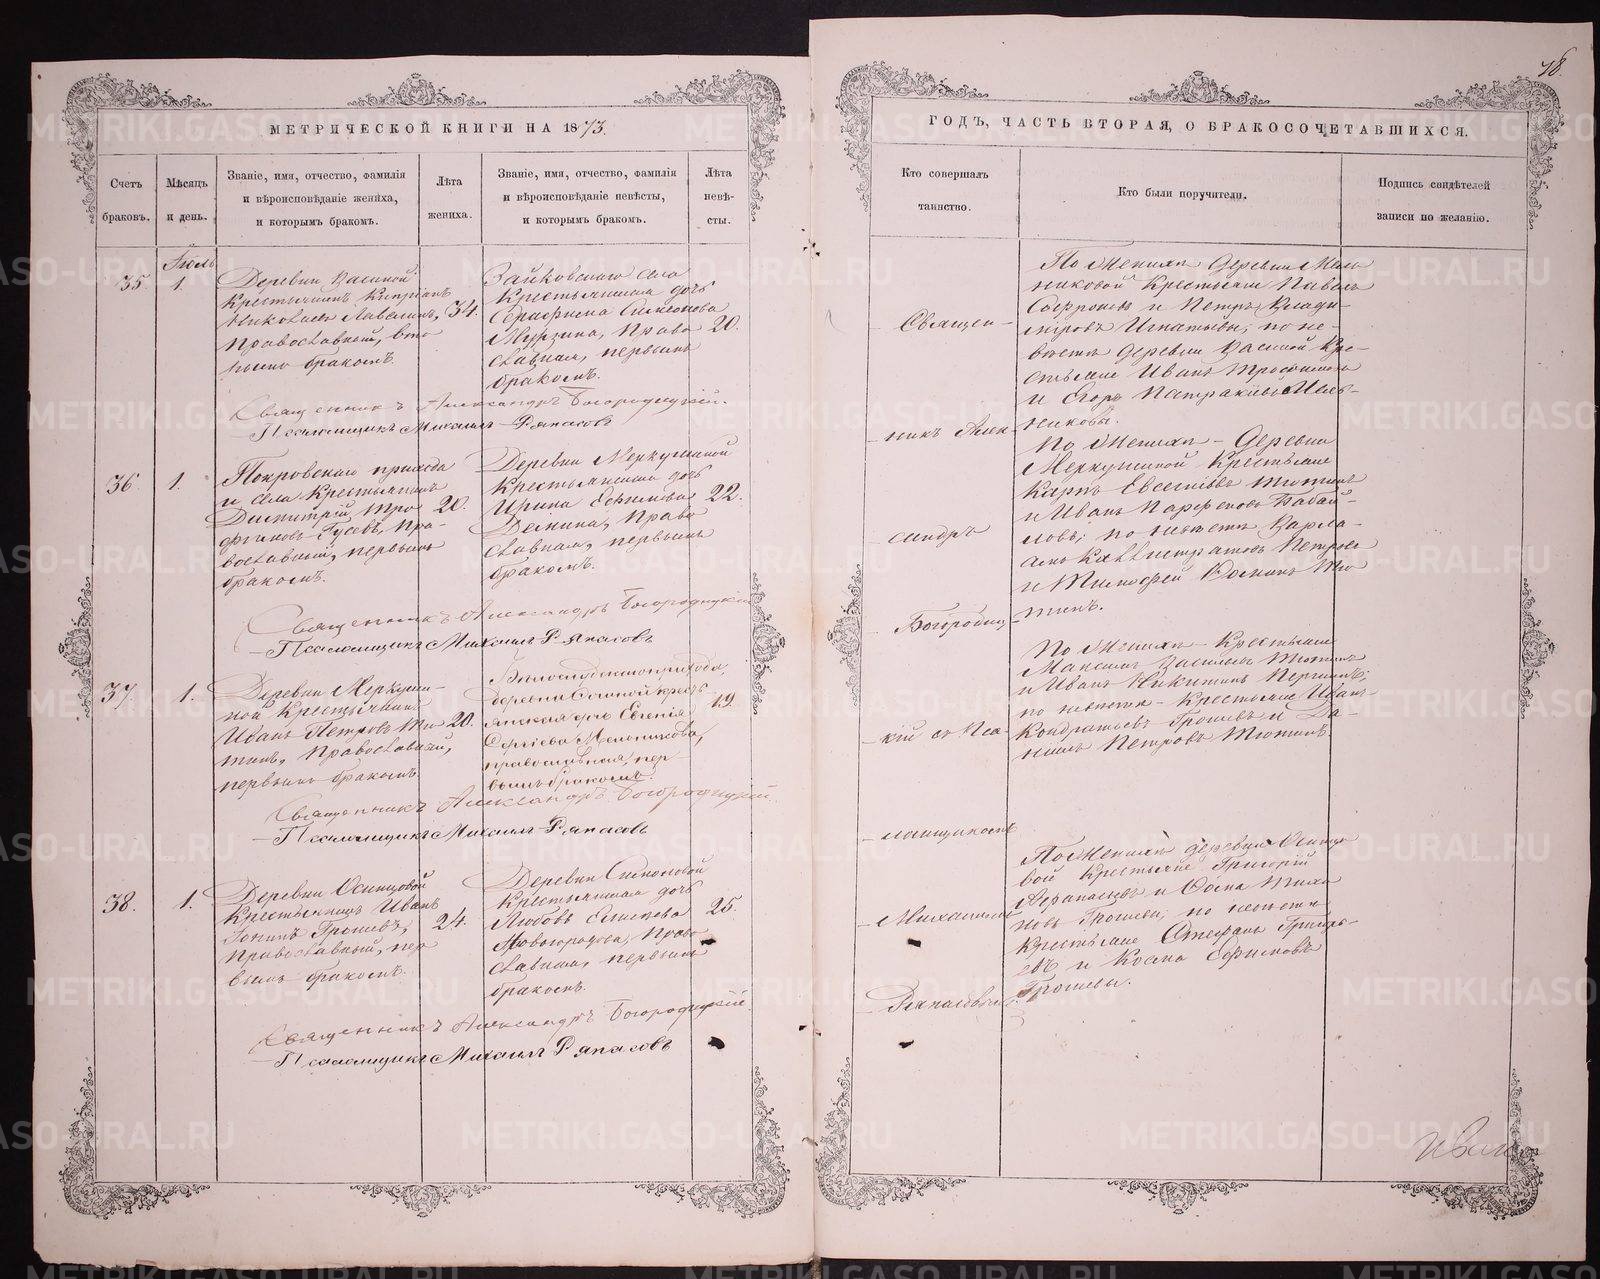 МЕТРИЧЕСКОЙ КНИГИ НА 1873.
Счетъ
браковъ.
Мѣсяцъ
и день.
Званіе, имя, отчество, фамилія
и вѣроисповѣданіе жениха,
и которымъ бракомъ.
Лѣта
жениха.
Званіе, имя, отчество, фамилія
и вѣроисповѣданіе невѣсты,
и которымъ бракомъ.
Лѣта
невѣ-
сты.
Іюль
35.
1.
Деревни
Крестьянинъ Кипріанъ
Николаевъ
православный, вто
рымъ бракомъ.
34.
Зайковскаго села
Крестьянская дочь
Серафима Симеонова
Мурзина, право
славная, первымъ
бракомъ.
20.
Священникъ Александръ Богородицкій.
Псаломщикъ Михаилъ Ряпасовъ
36.
1.
Покровскаго прихода
и села Крестьянинъ
Димитрій Тро
фимовъ Гусевъ, пра-
вославный, первымъ
бракомъ.
20.
Деревни Меркушиной
Крестьянская дочь
Ирина Ефимова
Демина, право
славная, первымъ
бракомъ.
22.
Священникъ Александръ Богородицкій
Псаломщикъ Михаилъ Ряпасовъ
37.
1.
Деревни Меркуши-
ной Крестьянинъ
Иванъ Петровъ Тю
тинъ, православный,
первымъ бракомъ.
20.
Бѣлослудскаго прихода,
деревни кресть
янская дочь Евгенія
Сергіева Мельникова,
православная, пер-
вымъ бракомъ.
19.
Священникъ Александръ Богородицкій.
Псаломщикъ Михаилъ Ряпасовъ
38.
1.
Деревни Осинцовой
Крестьянинъ Иванъ
Іонинъ Грошевъ,
православный, пер
вымъ бракомъ.
24.
Деревни Симоновой
Крестьянская дочь
Любовь
Новогородова, право
славная, первымъ
бракомъ.
25.
Священникъ Александръ Богородицкій.
Псаломщикъ Михаилъ Ряпасовъ
78.
ГОДЪ, ЧАСТЬ ВТОРАЯ, О БРАКОСОЧЕТАВШИХСЯ.
Кто совершалъ
таинство.
Кто были поручители.
Подпись свидѣтелей
записи по желанію.
Священ-
никъ Алек-
сандръ
Богородиц-
кій съ Пса-
ломщикомъ
Михаиломъ
Ряпасовымъ.
По женихѣ деревни Мель
никовой Крестьяне Павелъ
Софроновъ и Петръ Влади-
міровъ Игнатьевы; по не-
вѣстѣ деревни Кре-
стьяне Иванъ Трофимовъ
и Егоръ Патракѣевъ Мель-
никовы.
По женихѣ - Деревни
Меркушиной Крестьяне
Карпъ Евсегніевъ Тютинъ
и Иванъ Парфеновъ Бабай-
ловъ; по невѣстѣ Варла-
амъ Каллистратовъ Петровъ
и Тимофей Тю
тинъ.
По женихѣ - Крестьяне
Максимъ Васильевъ Тютинъ
и Иванъ Никитинъ
по невѣстѣ - Крестьяне Иванъ
Кондратьевъ Грошевъ и Да-
нилъ Петровъ Тютинъ.
По женихѣ деревни Осинцо
вой Крестьяне Григорій
Аѳанасьевъ и Ѳома Тихо
новъ Грошевы; по невѣстѣ
Крестьяне Стефанъ Григорь-
евъ и Косма Ефимовъ
Грошевы.
METRIKI.GASO-URAL.RU